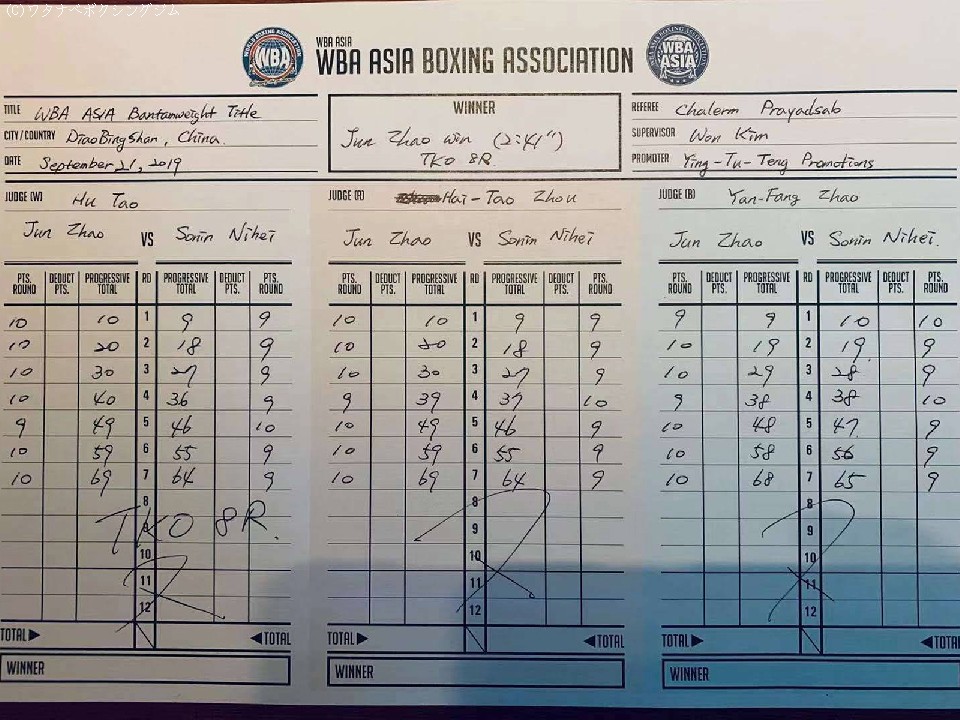 (C)ワタナベボクシングジム
WBA
WBA ASIA
WBA ASIA
WBA ASIA BOXING ASSOCIATION
TITLE WBA ASIA Bantamweight Title
CITY/COUNTRY DiaoBingShan, China.
DATE September 21, 2019
WINNER
Jun Zhao win (2:41")
TKO 8R.
REFEREE Chalerm Prayadsab
SUPERVISOR Won Kim
PROMOTER Ying-Tu-Teng Promotions
JUDGE (W) Hu Tao
Jun Zhao VS Sonin Nihei
PTS. ROUND DEDUCT PTS. PROGRESSIVE TOTAL RD PROGRESSIVE TOTAL DEDUCT PTS. PTS. ROUND
10 10 1 9 9
10 20 2 18 9
10 30 3 27 9
10 40 4 36 9
9 49 5 46 10
10 59 6 55 9
10 69 7 64 9
8
TKO 8R.
9
10
11
12
TOTAL TOTAL
WINNER
JUDGE (R) Hai-Tao Zhou
Jun Zhao VS Sonin Nihei
PTS. ROUND DEDUCT PTS. PROGRESSIVE TOTAL RD PROGRESSIVE TOTAL DEDUCT PTS. PTS. ROUND
10 10 1 9 9
10 20 2 18 9
10 30 3 27 9
9 39 4 37 10
10 49 5 46 9
10 59 6 55 9
10 69 7 64 9
8
9
10
11
12
TOTAL TOTAL
WINNER
JUDGE (B) Yan-Fang Zhao
Jun Zhao VS Sonin Nihei.
PTS. ROUND DEDUCT PTS. PROGRESSIVE TOTAL RD PROGRESSIVE TOTAL DEDUCT PTS. PTS. ROUND
9 9 1 10 10
10 19 2 19 9
10 29 3 28 9
9 38 4 38 10
10 48 5 47 9
10 58 6 56 9
10 68 7 65 9
8
9
10
11
12
TOTAL TOTAL
WINNER